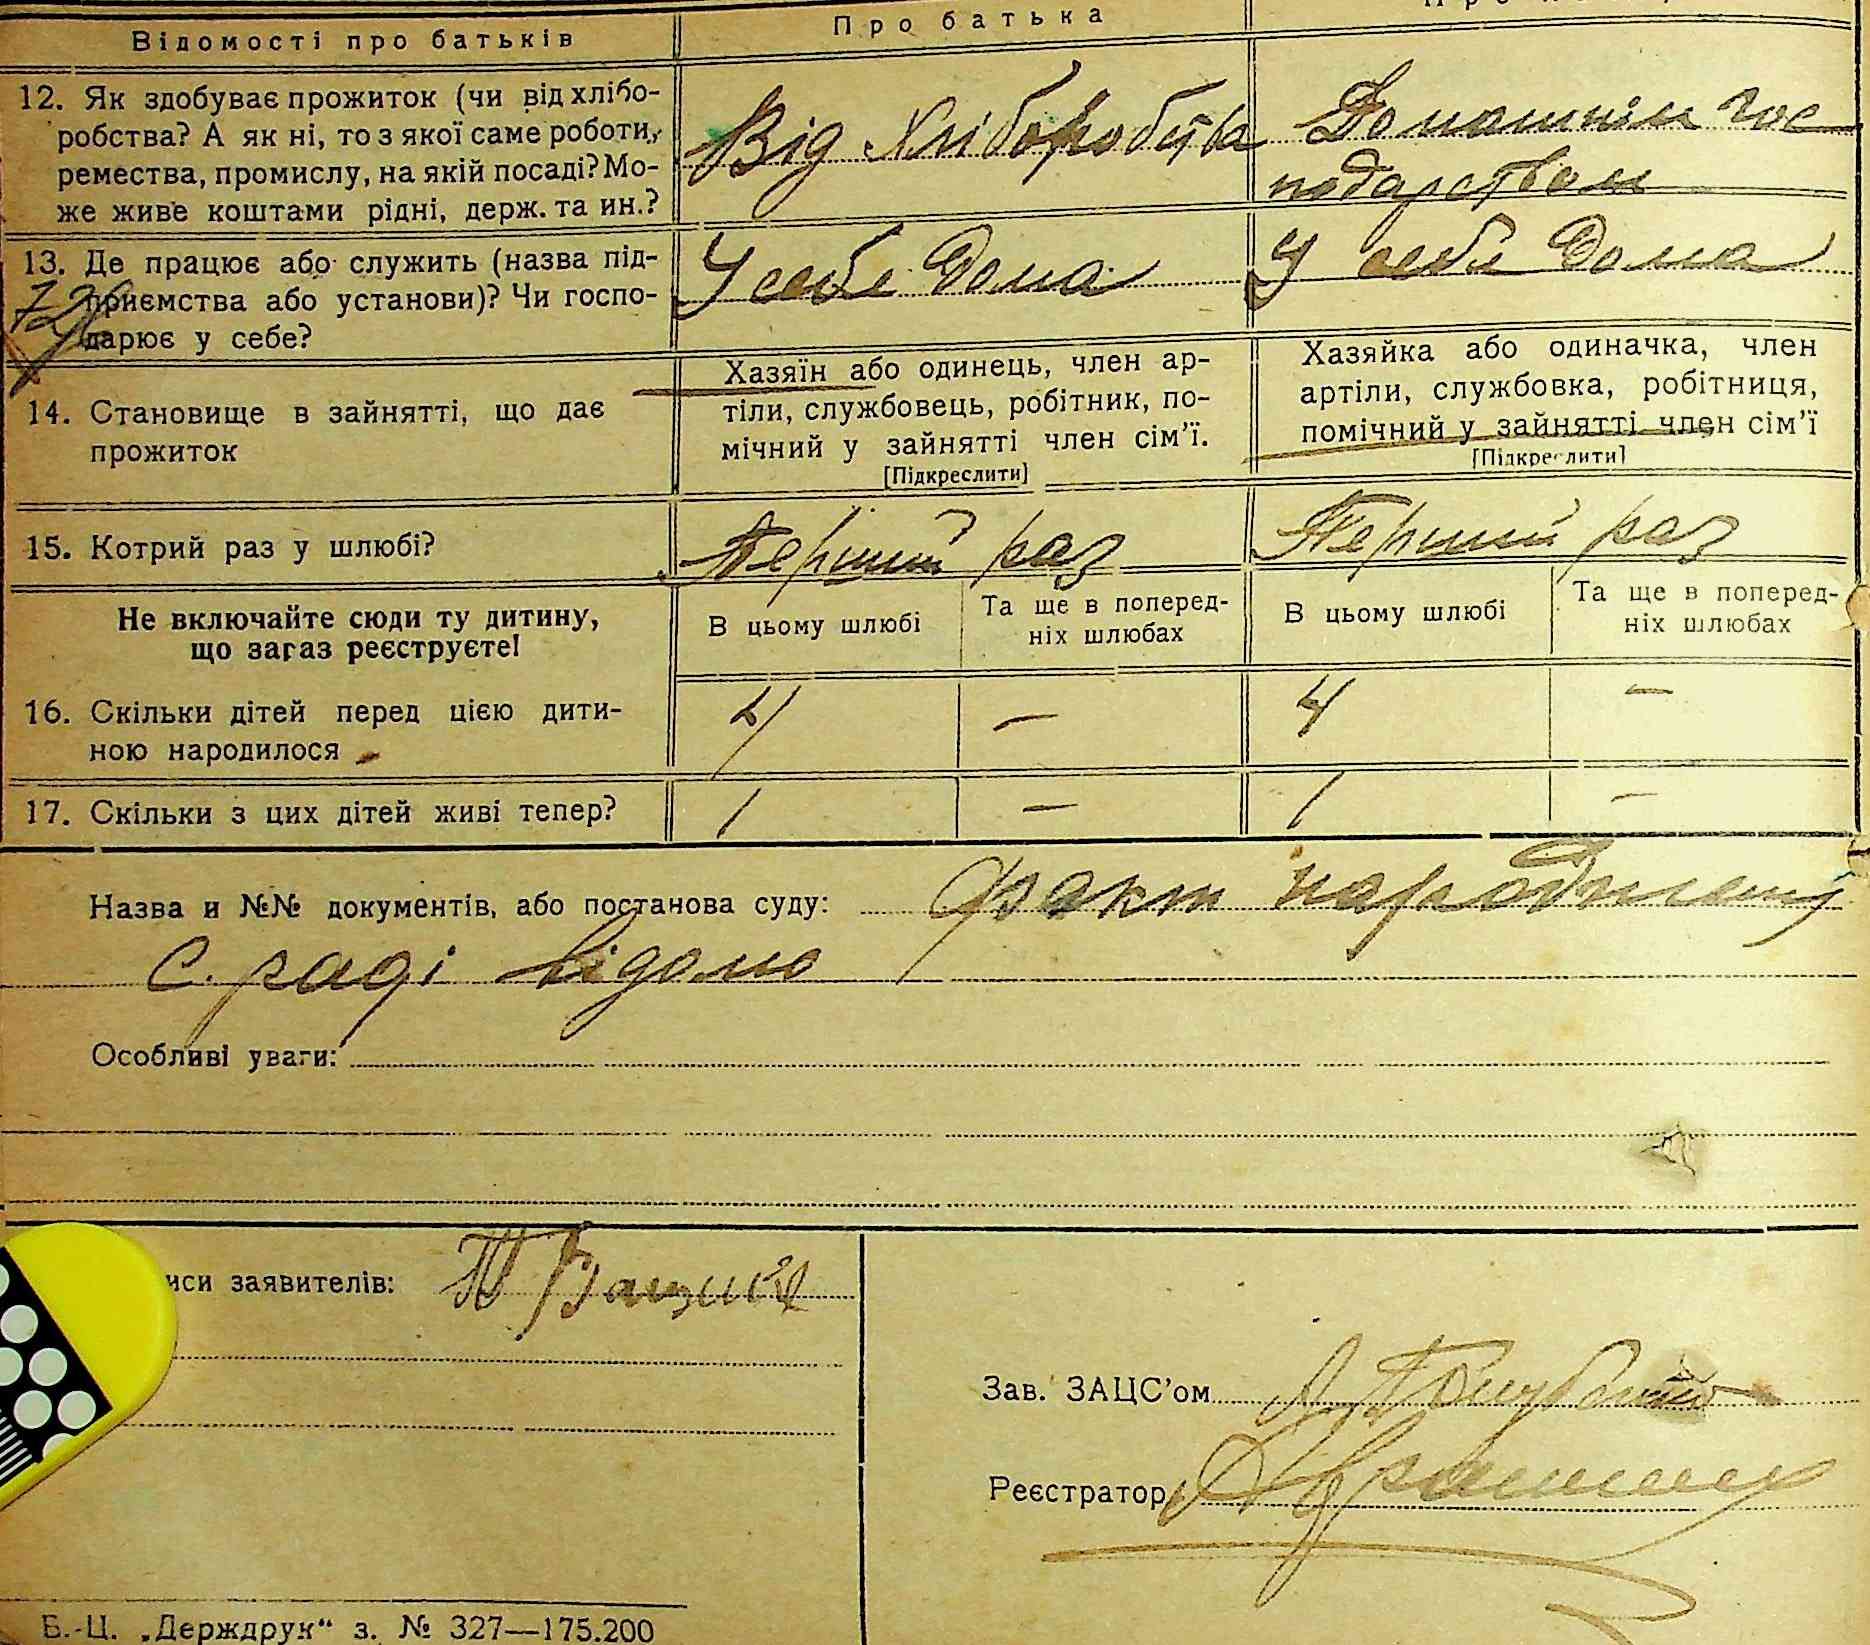 Відомості про батьків
Про батька
12. Як здобуває прожиток (чи від хлібо-
робства? А як ні, то з якої саме роботи,
ремества, промислу, на якій посаді? Мо-
же живе коштами рідні, держ. та ин.?
Від хліборобства
Домашнім гос
подарством
13. Де працює або служить (назва під-
приємства або установи)? Чи госпо-
дарює у себе?
У себе дома
У себе дома
14. Становище в зайнятті, що дає
прожиток
Хазяїн або одинець, член ар-
тіли, службовець, робітник, по-
мічний у зайнятті член сім’ї.
[Підкреслити]
Хазяйка або одиначка, член
артіли, службовка, робітниця,
помічний у зайнятті член сім’ї
[Підкреслити]
15. Котрий раз у шлюбі?
Перший раз
Перший раз
Не включайте сюди ту дитину,
що зараз реєструєте!
В цьому шлюбі
Та ще в поперед-
ніх шлюбах
В цьому шлюбі
Та ще в поперед-
ніх шлюбах
16. Скільки дітей перед цією дити-
ною народилося
4 — 4 —
17. Скільки з цих дітей живі тепер?
1 — 1 —
Назва и №№ документів, або постанова суду: Факт народження
с. раді відомо
Особливі уваги:
иси заявителів:
Зав. ЗАЦС’ом
Реєстратор
Б.-Ц. „Держдрук“ з. № 327—175.200